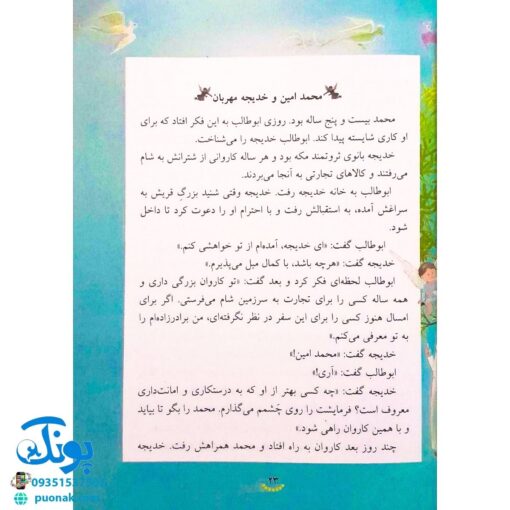 محمد امین و خدیجه مهربان
محمد بیست و پنج ساله بود. روزی ابوطالب به این فکر افتاد که برای
او کاری شایسته پیدا کند. ابوطالب خدیجه را می‌شناخت.
خدیجه بانوی ثروتمند مکه بود و هر ساله کاروانی از شترانش به شام
می‌رفتند و کالاهای تجارتی به آنجا می‌بردند.
ابوطالب به خانه خدیجه رفت. خدیجه وقتی شنید بزرگِ قریش به
سراغش آمده، به استقبالش رفت و با احترام او را دعوت کرد تا داخل
شود.
ابوطالب گفت: «ای خدیجه، آمده‌ام از تو خواهشی کنم.»
خدیجه گفت: «هرچه باشد، با کمال میل می‌پذیرم.»
ابوطالب لحظه‌ای فکر کرد و بعد گفت: «تو کاروان بزرگی داری و
همه ساله کسی را برای تجارت به سرزمین شام می‌فرستی. اگر برای
امسال هنوز کسی را برای این سفر در نظر نگرفته‌ای، من برادرزاده‌ام را
به تو معرفی می‌کنم.»
خدیجه گفت: «محمد امین!»
ابوطالب گفت: «آری!»
خدیجه گفت: «چه کسی بهتر از او که به درستکاری و امانت‌داری
معروف است؟ فرمایشت را روی چَشمم می‌گذارم. محمد را بگو تا بیاید
و با همین کاروان راهی شود.»
چند روز بعد کاروان به راه افتاد و محمد همراهش رفت. خدیجه
۲۳
پونک